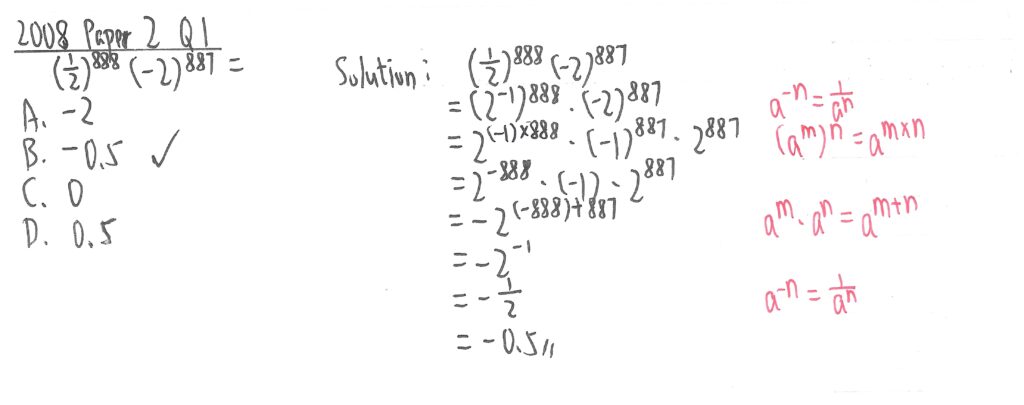 2008 Paper 2 Q1
(1/2)^888 (-2)^887 =
A. -2
B. -0.5 ✓
C. 0
D. 0.5
Solution: (1/2)^888 (-2)^887
= (2^-1)^888 · (-2)^887
= 2^(-1)×888 · (-1)^887 · 2^887
= 2^-888 · (-1) · 2^887
= -2^(-888)+887
= -2^-1
= -1/2
= -0.5//
a^-n = 1/a^n
(a^m)^n = a^m×n
a^m · a^n = a^m+n
a^-n = 1/a^n